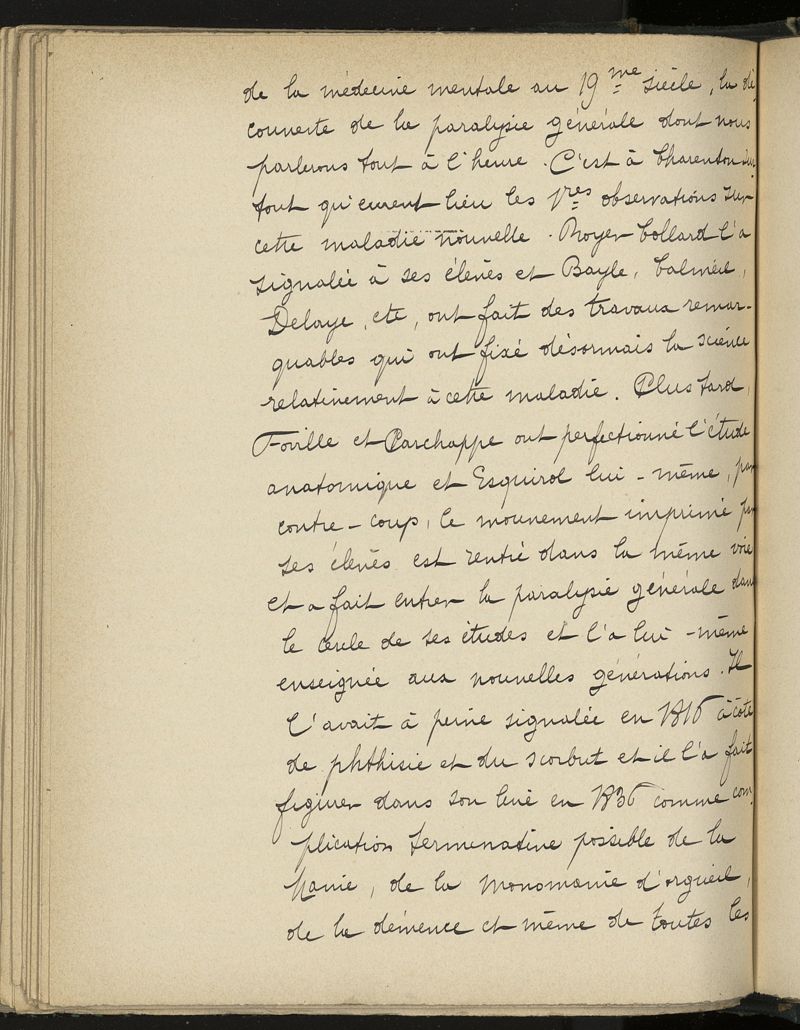 de la médecine mentale au 19me siècle, la dé
couverte de la paralysie générale dont nous
parlerons tout à l'heure. C'est à Charenton sur
tout qu'eurent lieu les 1res observations sur
cette maladie nouvelle. Royer Collard l'a
signalée à ses élèves et Bayle, Calmeil,
Delaye, etc, ont fait des travaux remar-
quables qui ont fixé désormais la science
relativement à cette maladie. Plus tard,
Foville et Parchappe ont perfectionné l'étude
anatomique et Esquirol lui-même, par
contre-coup, le mouvement imprimé par
ses élèves est rentré dans la même voie
et a fait entrer la paralysie générale dans
le cercle de ses études et l'a lui-même
enseignée aux nouvelles générations. Il
l'avait à peine signalée en 1816 à côté
de phthisie et du scorbut et il l'a fait
figurer dans son livre en 1836 comme com
plication terminative possible de la
Manie, de la monomanie d'orgueil,
de la démence et même de toutes les